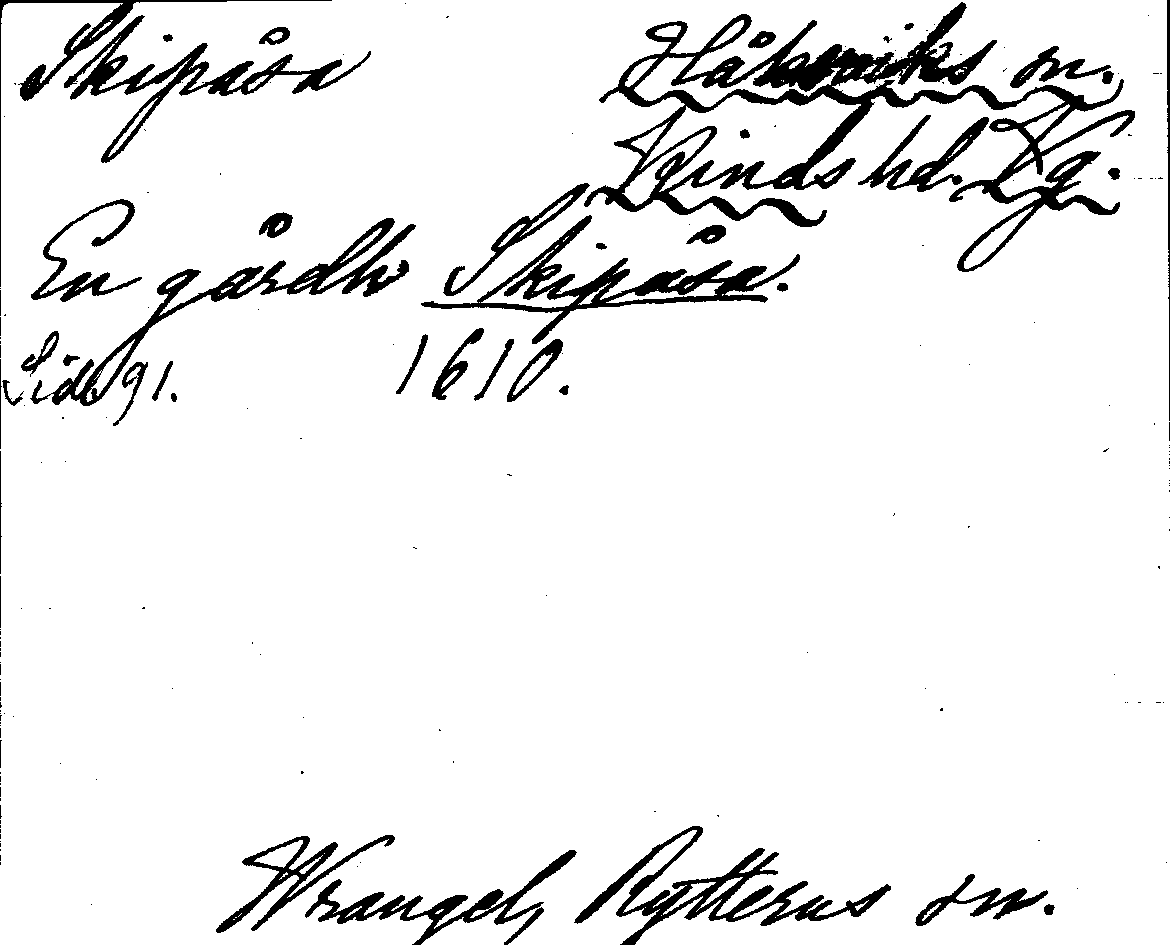 Skipåsa
Håksviks sn.
Kinds hd. Vg.
En gårdh Skipåsa.
Sid. 91. 1610.
Wrangel, Rytterns sn.